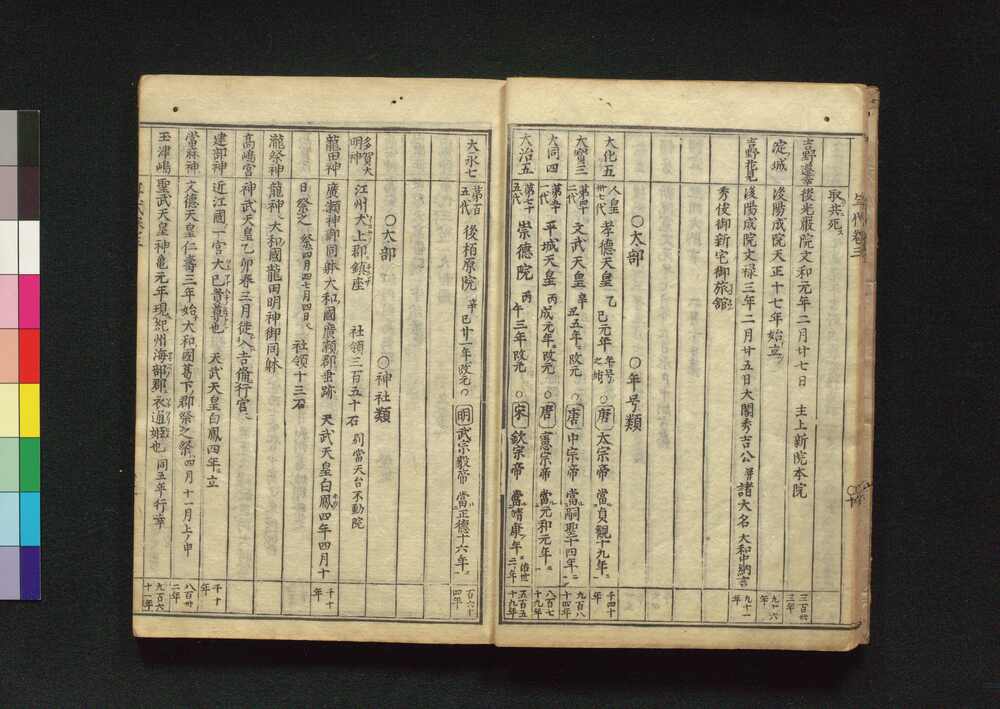 取共死
吉野遷幸 後光嚴院文和元年二月廿七日 主上新院本院 三百廿三年
淀城 後陽成院天正十七年始立 九十六年
吉野花見 後陽成院文禄三年二月廿五日大閤秀吉公并諸大名大和中納言 九十一年
秀俊御新宅御旅舘
○太部 ○年号類
大化五 人皇卅七代 孝德天皇 乙巳元年 年号之始 ○唐 太宗帝 當貞觀十九年 千四十年
大寳三 第四十二代 文武天皇 辛丑五年改元 ○唐 中宗帝 當嗣聖十四年 九百八十四年
大同四 第五十一代 平城天皇 丙戌元年改元 ○唐 憲宗帝 當元和元年 八百七十九年
大治五 第七十五代 崇德院 丙午三年改元 ○宋 欽宗帝 當靖康年 五百五十九年
大永七 第百五代 後栢原院 辛巳廿一年改元 ○明 武宗毅帝 當正德十六年 百六十四年
○太部 ○神社類
多賀大明神 江州犬上郡鎮座 社領三百五十石 別當天台不動院
龍田神 廣瀬神御同躰大和國廣瀬郡垂跡 天武天皇白鳳四年四月十 千十年
日祭之 祭四月四七月四日 社領十三石
瀧祭神 龍神 大和國龍田明神御同躰
高嶋宮 神武天皇乙卯春三月徙入吉備行宮
建部神 近江國一宮大已貴尊也 天武天皇白鳳四年立 千十年
當麻神 文德天皇仁壽三年始 大和國葛下郡祭之祭四月十一月上ノ申 八百卅二年
玉津嶋 聖武天皇神亀元年現紀州海部郡衣通姫也 同五年行幸 九百六十一年